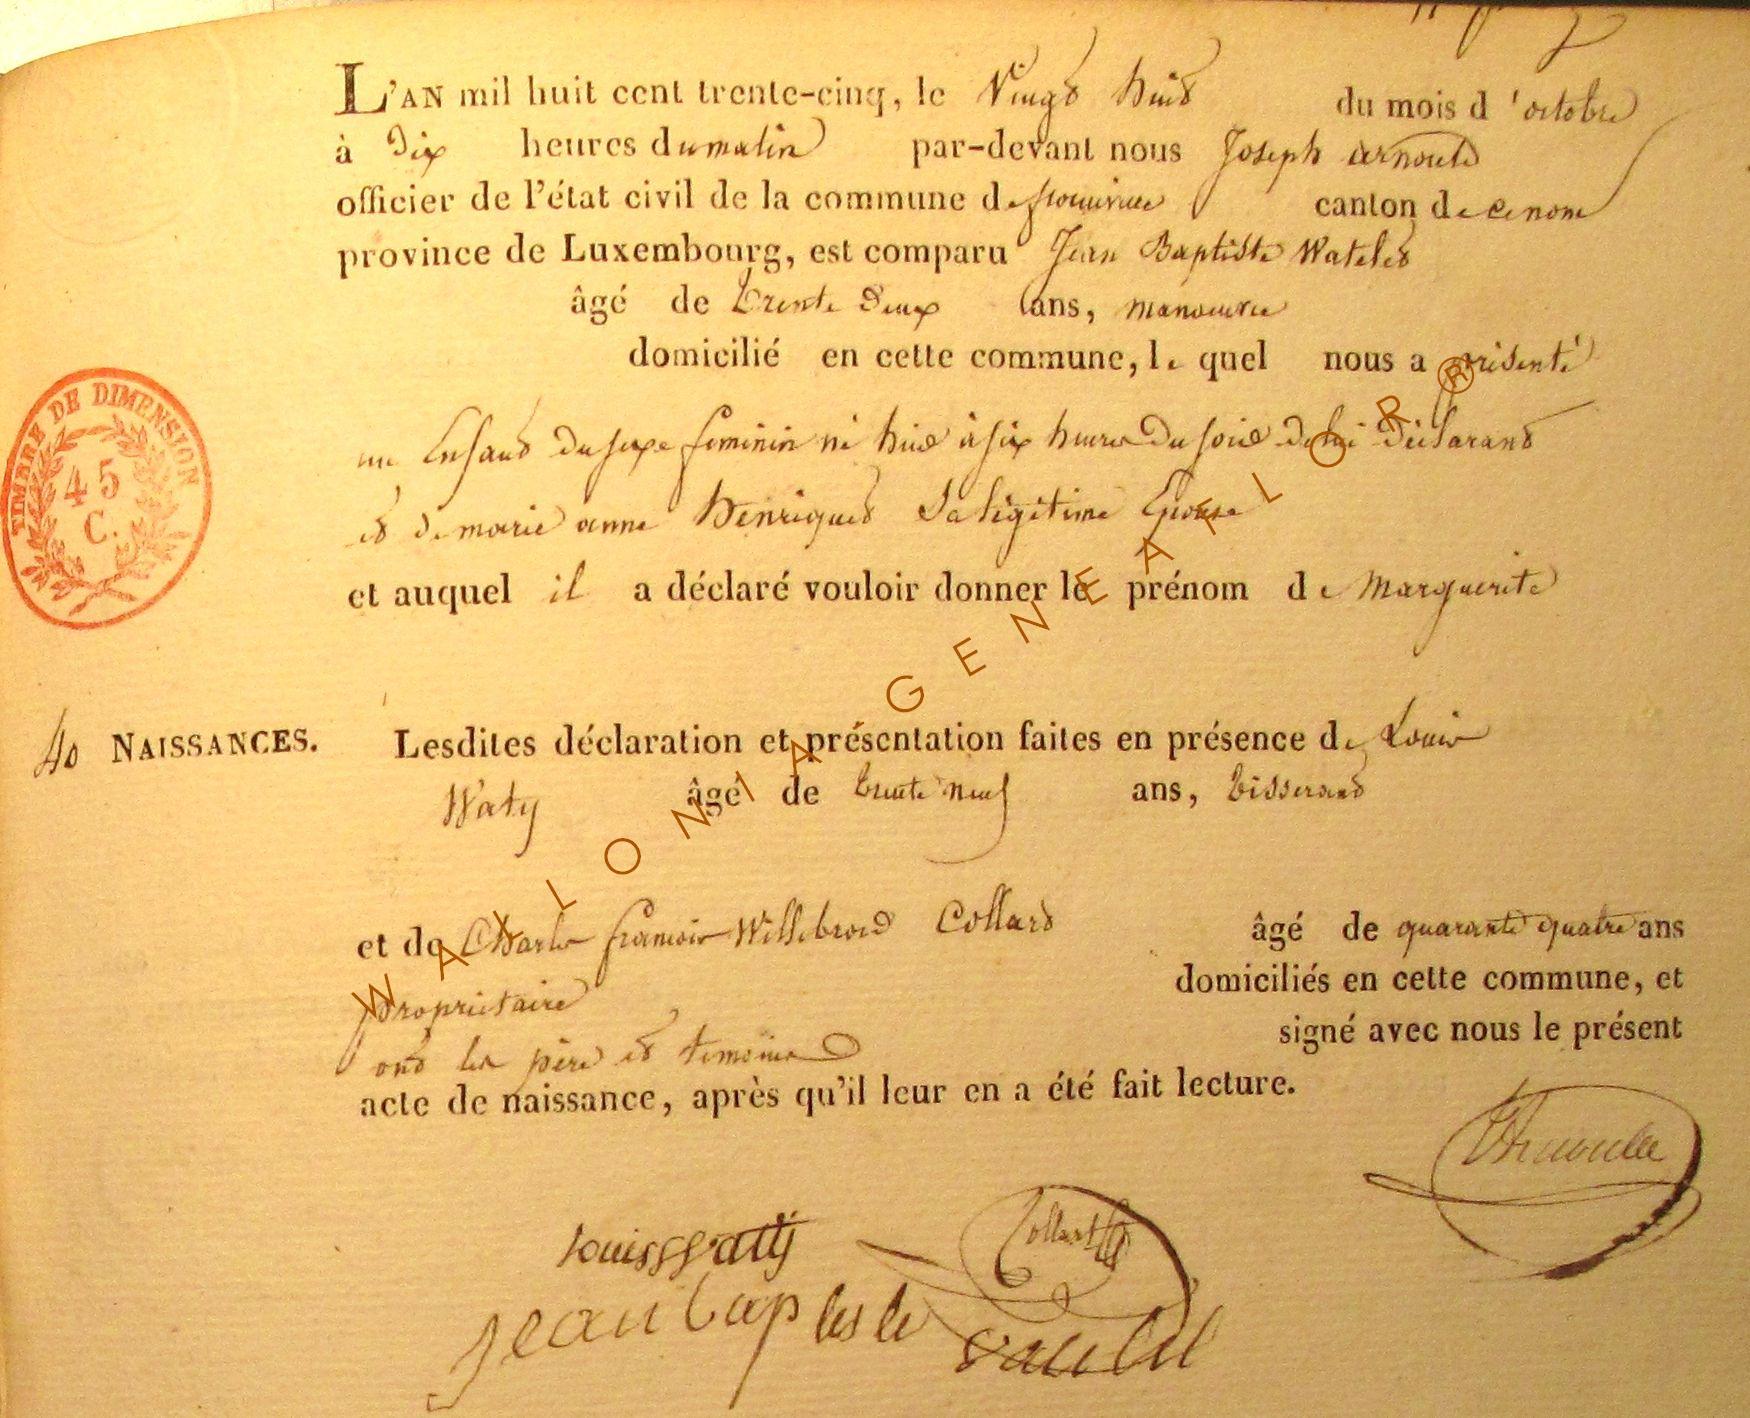 L'AN mil huit cent trente-cinq, le Vingt huit du mois d'octobre
à Dix heures du matin par-devant nous Joseph arnould
officier de l'état civil de la commune de canton de ce nom
province de Luxembourg, est comparu Jean Baptiste Watelet
âgé de trente deux ans, manoeuvre
domicilié en cette commune, le quel nous a présenté
un Enfant du sexe feminin né hier à six heures du soir de lui Déclarant
et de marie anne Henriquet Sa légitime Epouse
et auquel il a déclaré vouloir donner le prénom de Marguerite
40 NAISSANCES.
Lesdites déclaration et présentation faites en présence de Louis
Waty âgé de trente neuf ans, tisserand
et de Charles françois Willebrord Collard âgé de quarante quatre ans
propriétaire domiciliés en cette commune, et
ont les père et temoins signé avec nous le présent
acte de naissance, après qu'il leur en a été fait lecture.
louis Waty
Collard
jean baptiste
TIMBRE DE DIMENSION
45
C.
WALLONIA GENEAFLOR ®